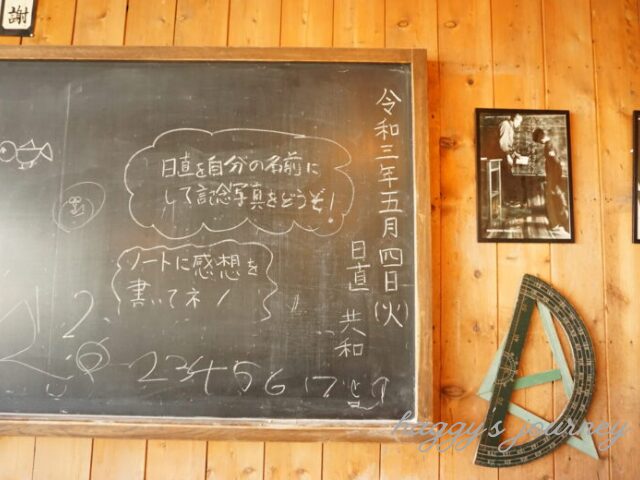 謝
令和三年五月四日(火)
日直
共和
日直を自分の名前に
して記念写真をどうぞ!
ノートに感想を
書いてネ!
2
2 3 4 5 6 17
haggy's journey